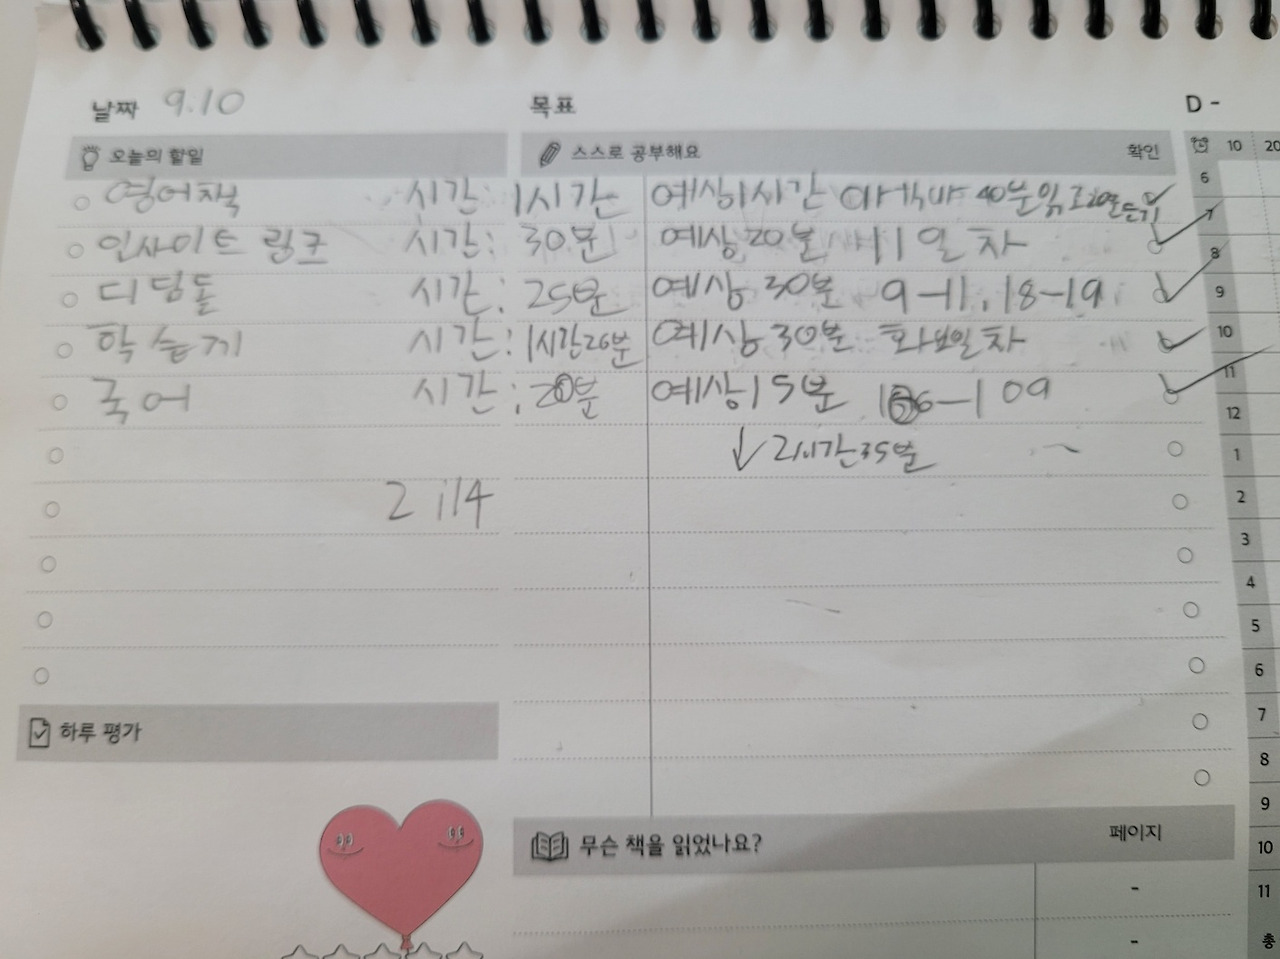 날짜 9.10 목표 D -
오늘의 할일 스스로 공부해요 확인 10 20
영어책 시간: 1시간 예상1시간 40분읽고20분듣기
인사이트 링크 시간: 30분 예상 20분 11일차
디딤돌 시간: 25분 예상 30분 9-11, 18-19
학습지 시간: 1시간26분 예상 30분 화요일차
국어 시간: 20분 예상15분 106-109
↓ 2시간35분
2 i14
하루 평가
무슨 책을 읽었나요? 페이지
-
-
6
7
8
9
10
11
12
1
2
3
4
5
6
7
8
9
10
11
총